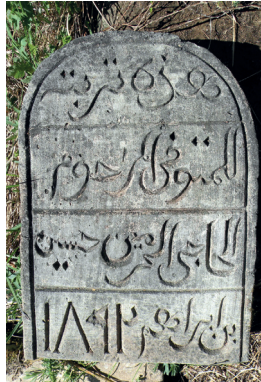 هذه تربة
المتوفى المرحوم
الحاجي الحرمين حسين
بن ابراهيم